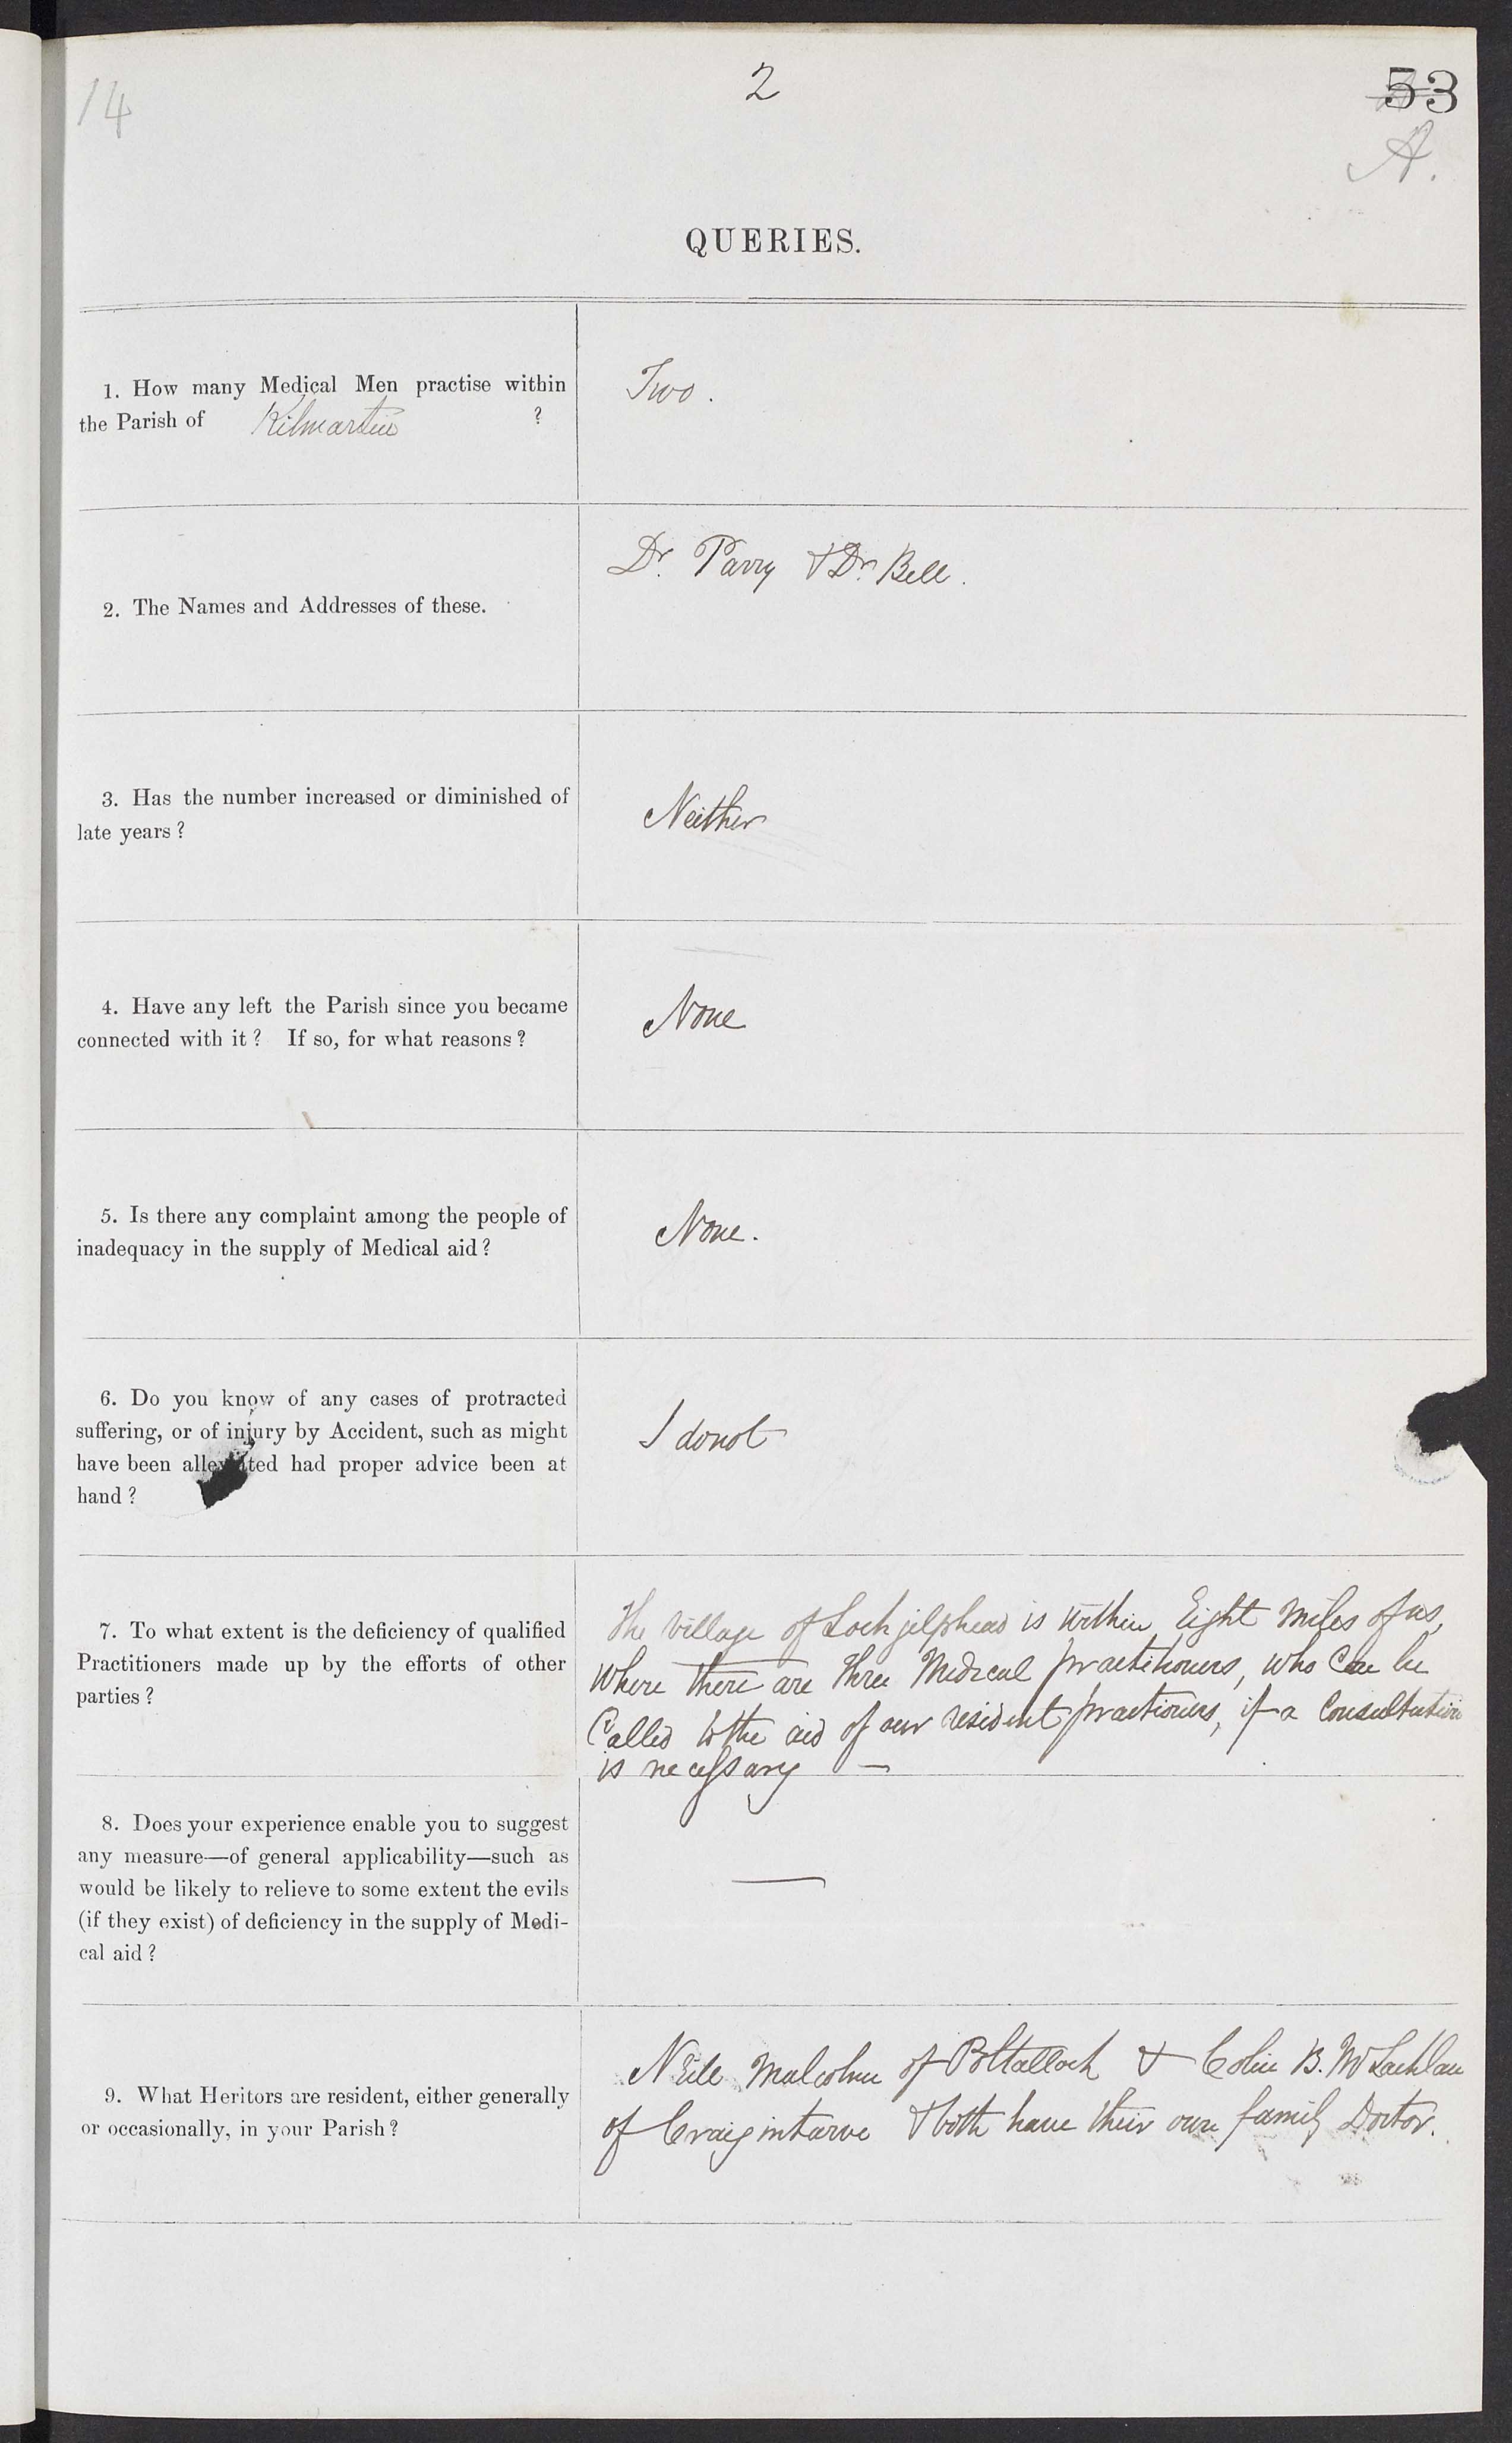 14
2
53
A.
QUERIES.
1. How many Medical Men practise within
the Parish of Kilmartin ?
Two.
2. The Names and Addresses of these.
Dr. Parry & Dr. Bell.
3. Has the number increased or diminished of
late years?
Neither
4. Have any left the Parish since you became
connected with it? If so, for what reasons?
None
5. Is there any complaint among the people of
inadequacy in the supply of Medical aid?
None.
6. Do you know of any cases of protracted
suffering, or of injury by Accident, such as might
have been alleviated had proper advice been at
hand?
I do not
7. To what extent is the deficiency of qualified
Practitioners made up by the efforts of other
parties?
The village of Lochgilphead is within Eight Miles of us,
where there are three Medical practitioners, who can be
Called to the aid of our resident practioners, if a Consultation
is necessary —
8. Does your experience enable you to suggest
any measure—of general applicability—such as
would be likely to relieve to some extent the evils
(if they exist) of deficiency in the supply of Medi-
cal aid?
—
9. What Heritors are resident, either generally
or occasionally, in your Parish?
Neile Malcolm of Poltalloch & Colin B. McLachlan
of Craigintarve & both have their own family Doctor.